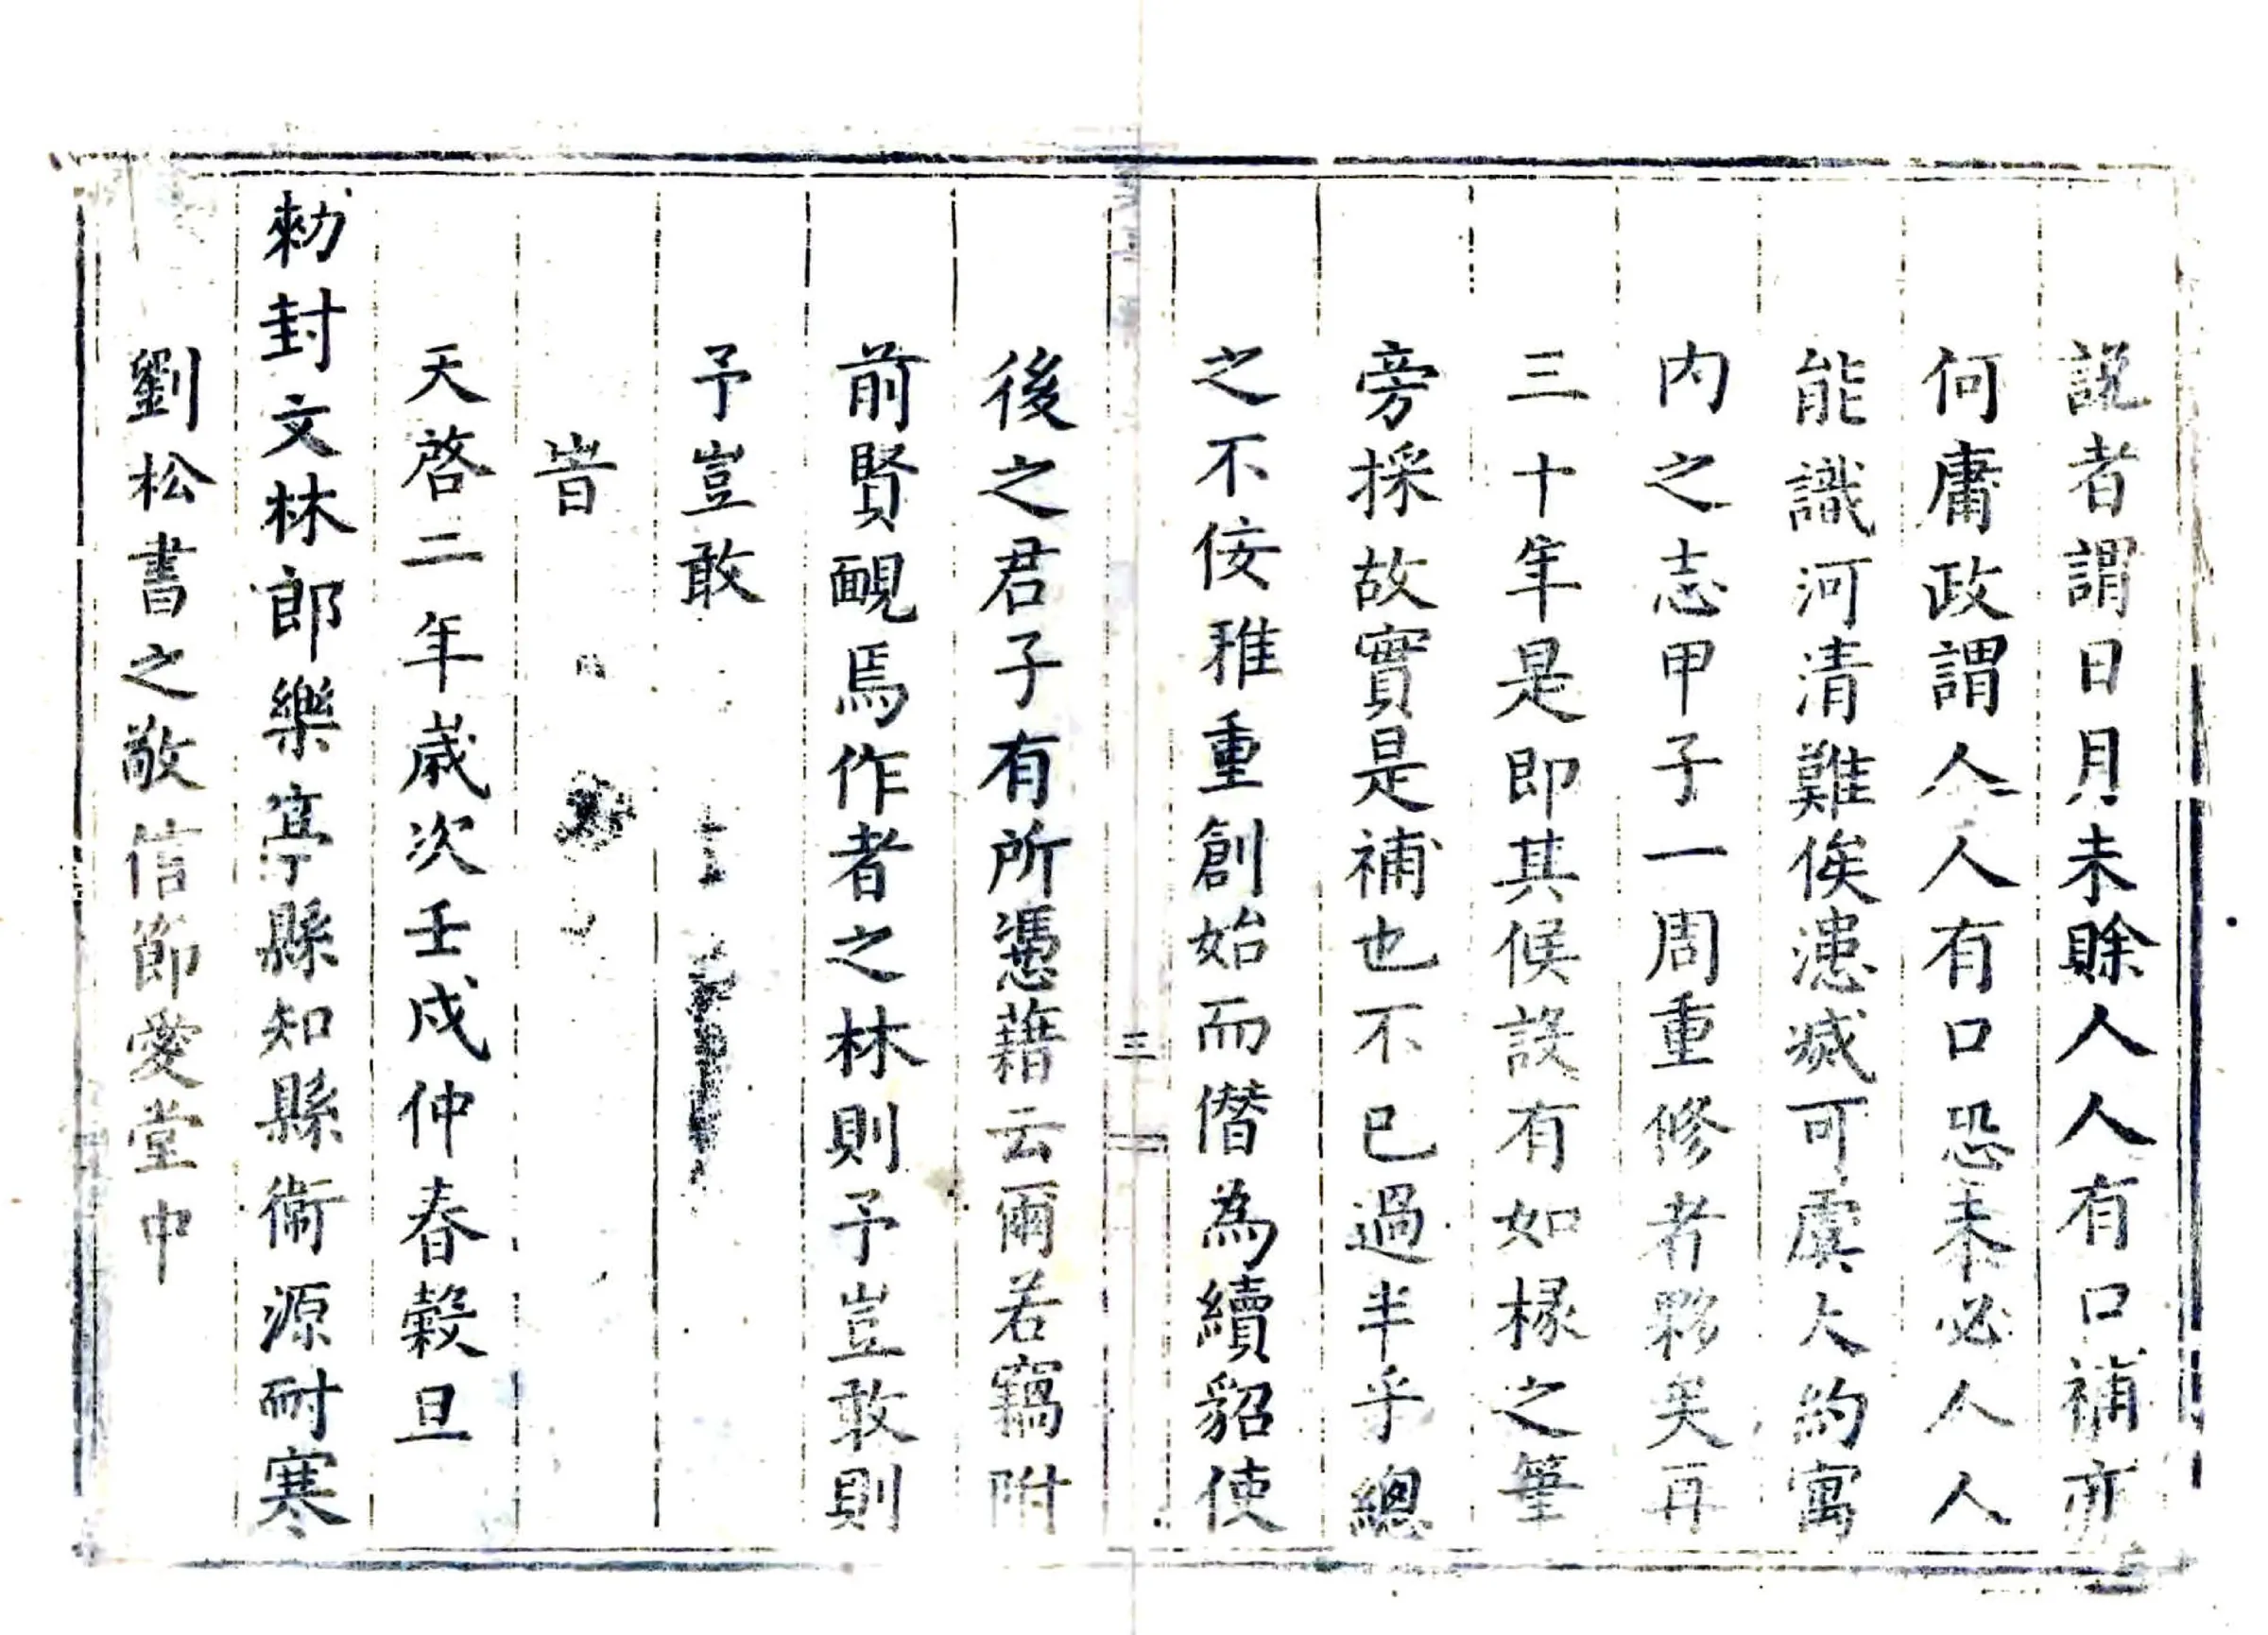 説者謂日月未賖人人有口補亦
何庸政謂人人人有口恐未必人人
能識河清難俟漶滅可虞大約寓
内之志甲子一周重修者夥矣再
三十年是即其候設有如椽之筆
旁採故實是補也不已過半乎總
之不佞稚重創始而僭為續貂使
三
後之君子有所憑藉云爾若竊附
前賢靦焉作者之林則予豈敢則
予豈敢
旹
天啓二年歲次壬戌仲春穀旦
勑封文林郎樂亭縣知縣衛源耐寒
劉松書之敬信節愛堂中